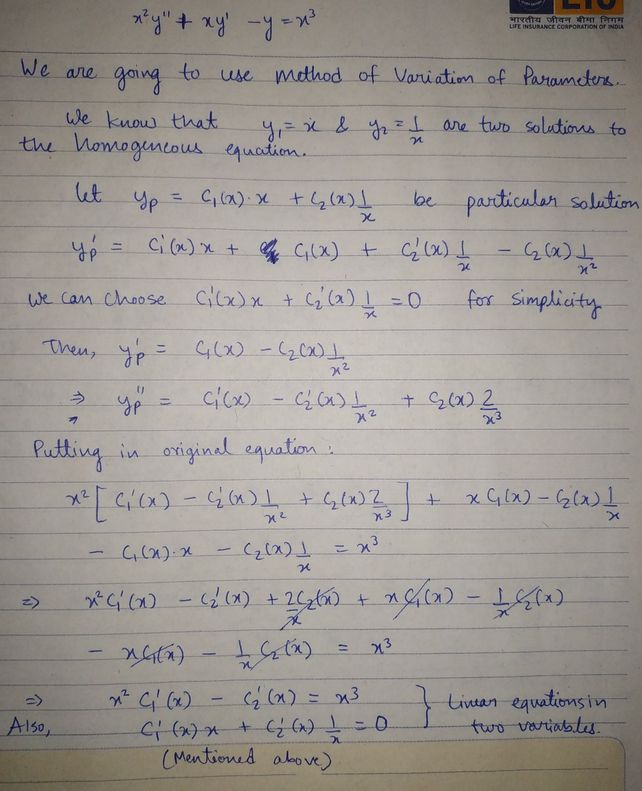 LIC
भारतीय जीवन बीमा निगम
LIFE INSURANCE CORPORATION OF INDIA
x²y'' + xy' - y = x³
We are going to use method of Variation of Parameters.
We know that y₁ = x & y₂ = 1/x are two solutions to
the homogeneous equation.
let yp = C₁(x)·x + C₂(x) 1/x be particular solution
yp' = C₁'(x) x + C₁(x) + C₂'(x) 1/x - C₂(x) 1/x²
we can choose C₁'(x) x + C₂'(x) 1/x = 0 for simplicity
Then, yp' = C₁(x) - C₂(x) 1/x²
⇒ yp'' = C₁'(x) - C₂'(x) 1/x² + C₂(x) 2/x³
Putting in original equation :
x² [ C₁'(x) - C₂'(x) 1/x² + C₂(x) 2/x³ ] + x C₁(x) - C₂(x) 1/x
- C₁(x)·x - C₂(x) 1/x = x³
⇒ x² C₁'(x) - C₂'(x) + 2C₂(x)/x + x C₁(x) - 1/x C₂(x)
- x C₁(x) - 1/x C₂(x) = x³
⇒ x² C₁'(x) - C₂'(x) = x³ } Linear equations in
Also, C₁'(x) x + C₂'(x) 1/x = 0 two variables.
(Mentioned above)